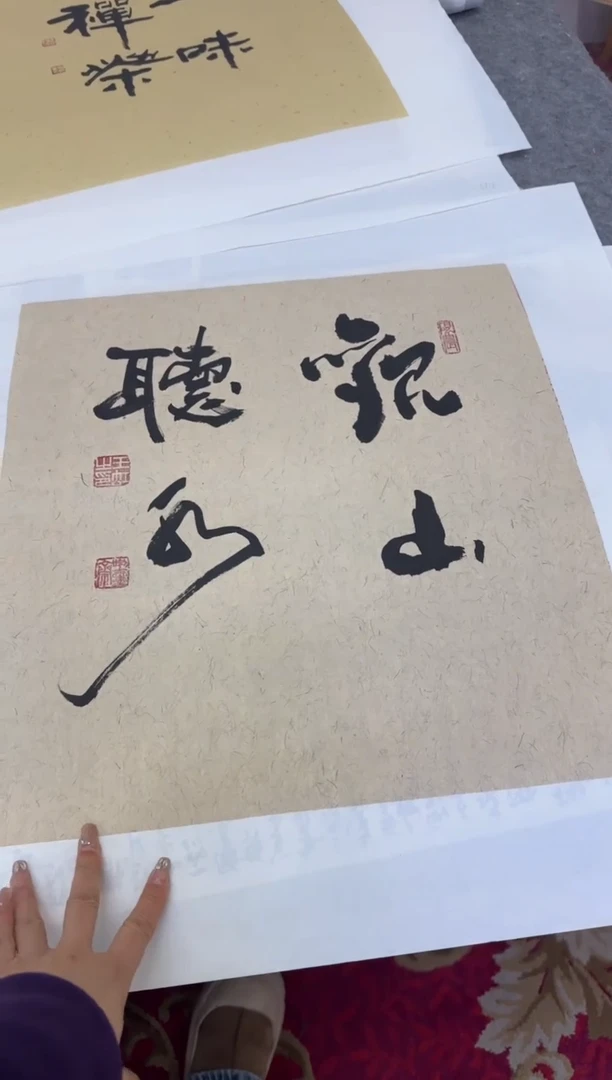 一味
禪茶
觀山
聽